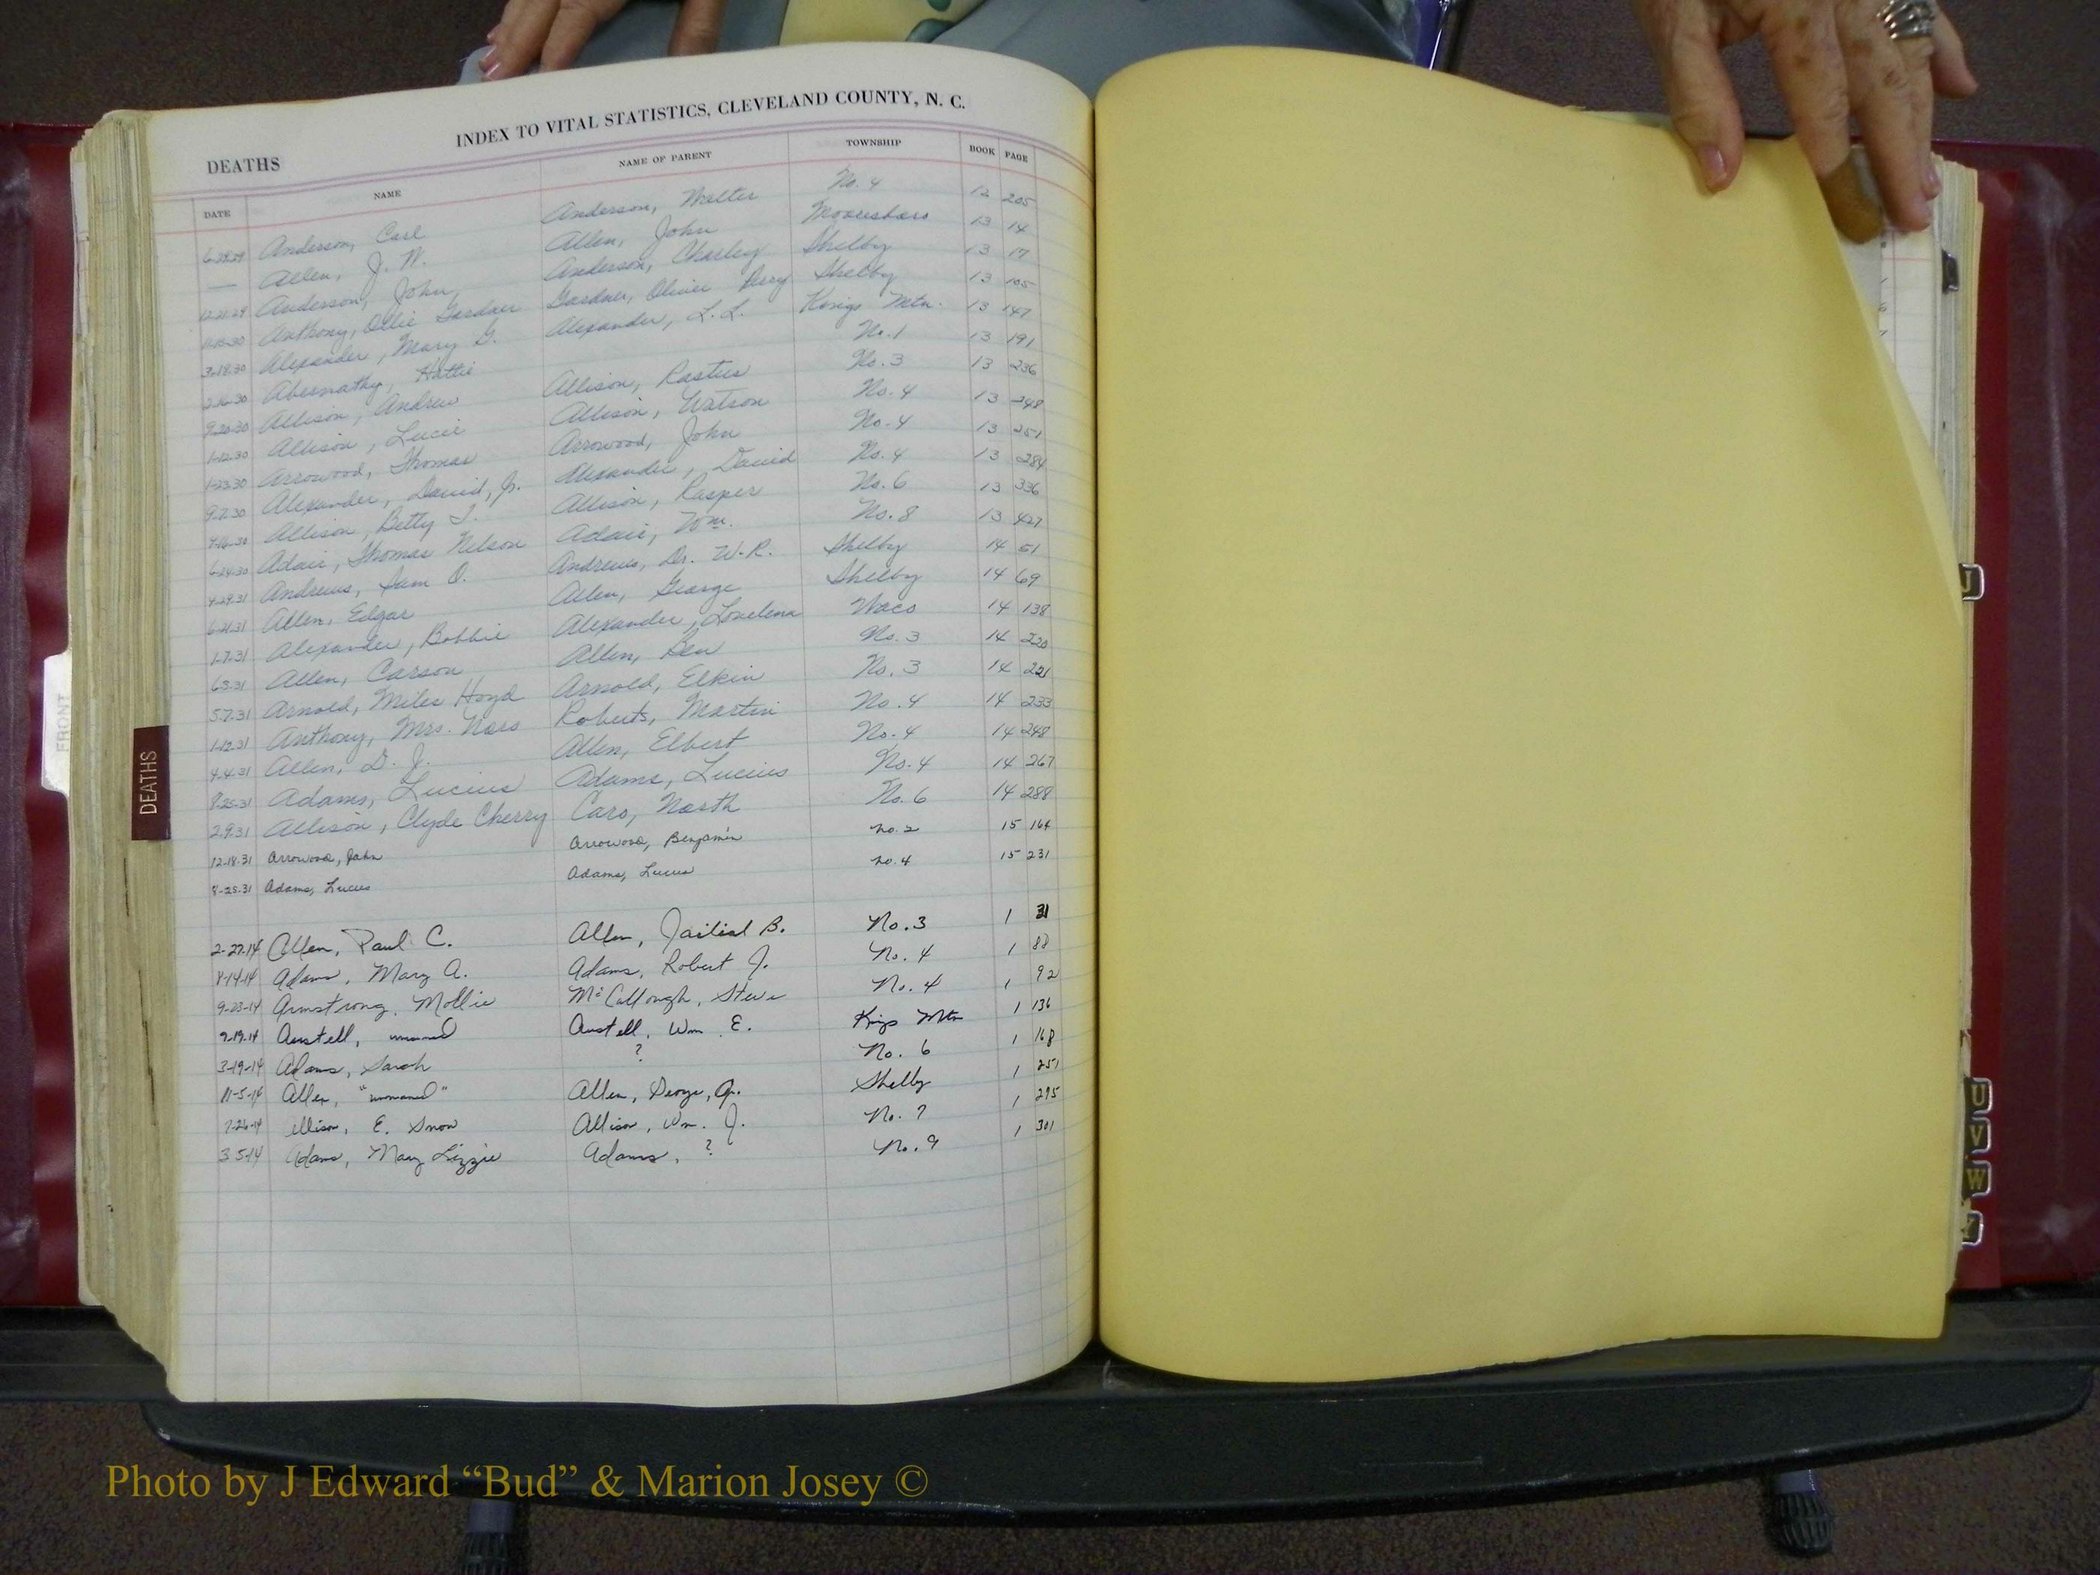 INDEX TO VITAL STATISTICS, CLEVELAND COUNTY, N. C.
DEATHS
DATE NAME NAME OF PARENT TOWNSHIP BOOK PAGE
Anderson, Carl Anderson, Walter No. 4 12 205
— Allen, J. W. Allen, John Mooresboro 13 14
12-21-29 Anderson, John Anderson, Charley Shelby 13 17
Anthony, Ollie Gardner Gardner, Oliver Perry Shelby 13 105
3-18-30 Alexander, Mary G. Alexander, L. L. Kings Mtn. 13 147
2-16-30 Abernathy, Hattie No. 1 13 191
9-20-30 Allison, Andrew Allison, Rastus No. 3 13 236
1-12-30 Allison, Lucie Allison, Watson No. 4 13 248
1-23-30 Arrowood, Thomas Arrowood, John No. 4 13 251
9-2-30 Alexander, David, Jr. Alexander, David No. 4 13 284
7-16-30 Allison, Betty J. Allison, Rasper No. 6 13 336
6-24-30 Adair, Thomas Nelson Adair, Tom. No. 8 13 427
4-29-31 Andrews, Sam O. Andrews, Dr. W. R. Shelby 14 51
6-21-31 Allen, Edgar Allen, George Shelby 14 69
1-7-31 Alexander, Bobbie Alexander, Lovelena Waco 14 138
6-3-31 Allen, Carson Allen, Ben No. 3 14 220
5-7-31 Arnold, Miles Hoyd Arnold, Elkin No. 3 14 221
1-12-31 Anthony, Mrs. Nora Roberts, Martin No. 4 14 233
4-4-31 Allen, D. J. Allen, Elbert No. 4 14 248
8-25-31 Adams, Lucius Adams, Lucius No. 4 14 267
2-9-31 Allison, Clyde Cherry Caro, North No. 6 14 288
12-18-31 Arrowood, John Arrowood, Benjamin No. 2 15 164
8-25-31 Adams, Lucius Adams, Lucius no. 4 15 231
2-27-14 Allen, Paul C. Allen, B. No. 3 1 31
4-14-14 Adams, Mary A. Adams, Robert J. No. 4 1 88
9-23-14 Armstrong, Mollie McCullough, Steve No. 4 1 92
9-19-14 Austell, unnamed Austell, Wm. E. Kings Mtn 1 136
3-19-14 Adams, Sarah ? No. 6 1 168
11-5-14 Allen, "unnamed" Allen, George, Jr. Shelby 1 251
7-26-14 Allison, E. Snow Allison, Wm. J. No. 7 1 295
3-5-14 Adams, Mary Lizzie Adams, ? No. 9 1 301
DEATHS
FRONT
J
U
V
W
Y
Photo by J Edward “Bud” & Marion Josey ©